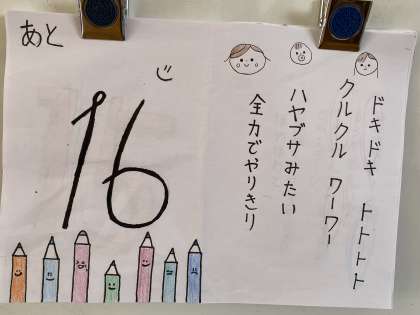 あと
16
ドキドキ トトトト
クルクル ワーワー
ハヤブサみたい
全力でやりきり